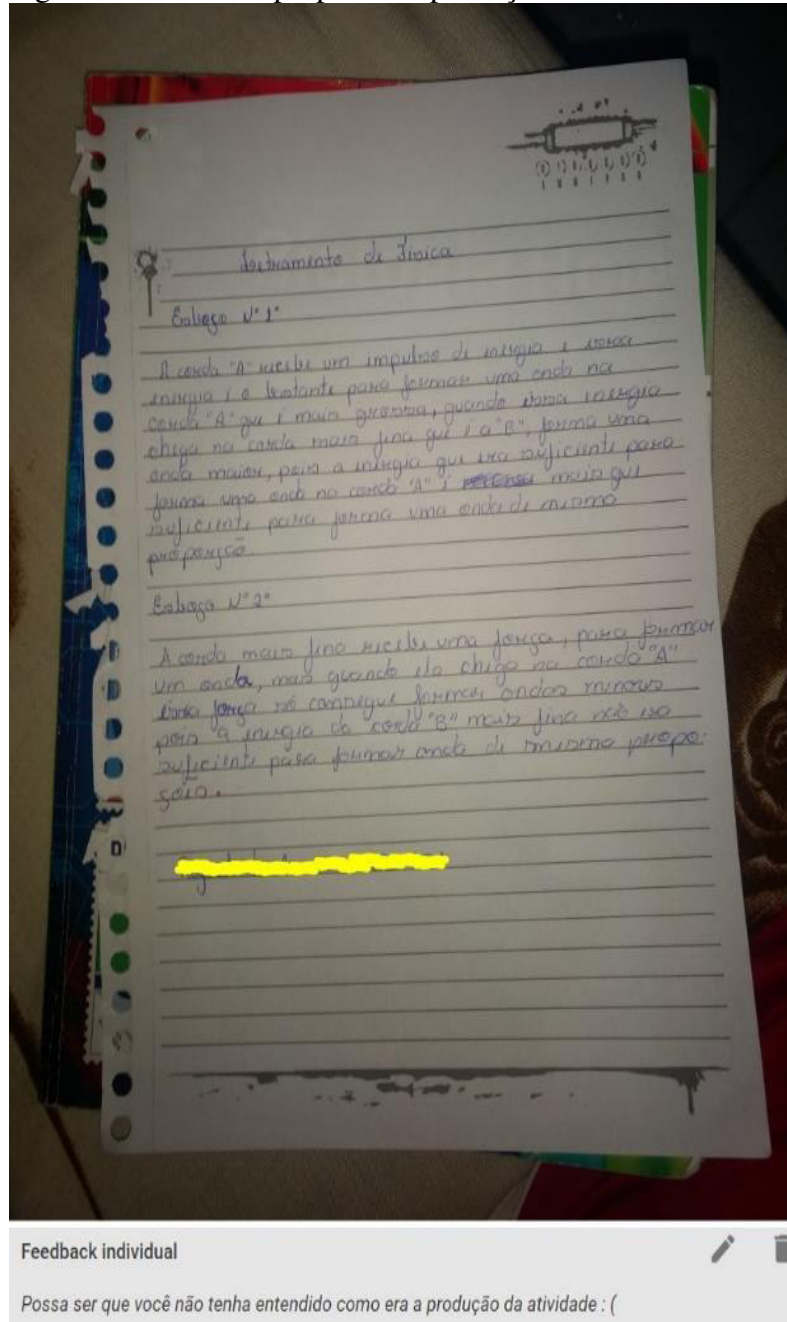 de Física
Esboço N° 1°
A corda "A" recebe um impulso de energia e essa
energia é o bastante para formar uma onda na
corda "A" que é mais grossa, quando essa energia
chega na corda mais fina que é a "B", forma uma
onda maior, pois a energia que era suficiente para
forma uma onda na corda "A" é mais que
suficiente para forma uma onda de mesmo
proporção.
Esboço N° 2°
A corda mais fina recebe uma força, para formar
um onda, mas quando ela chega na corda "A"
essa força só consegue formar ondas menores
pois a energia da corda "B" mais fina não era
suficiente para formar onda de mesmo propo-
Feedback individual
Possa ser que você não tenha entendido como era a produção da atividade : (